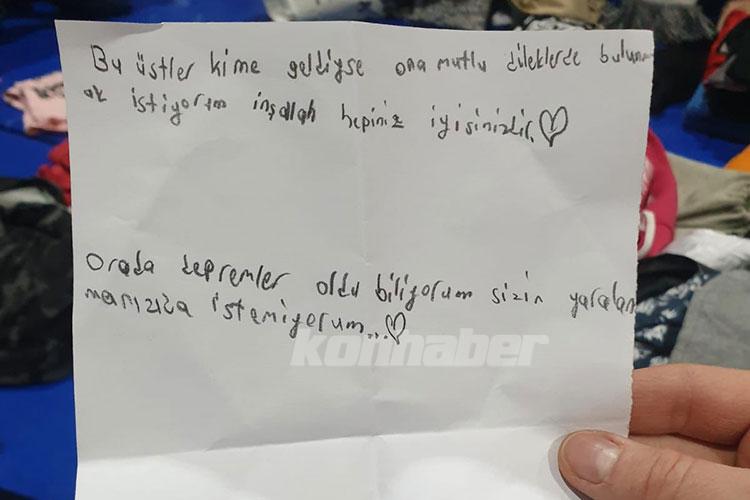 Bu üstler kime geldiyse ona mutlu dileklerde bulunm
ak istiyorum inşallah hepiniz iyisinizdir.
Orada depremler oldu biliyorum sizin yaralan
manızıda istemiyorum...
konhaber